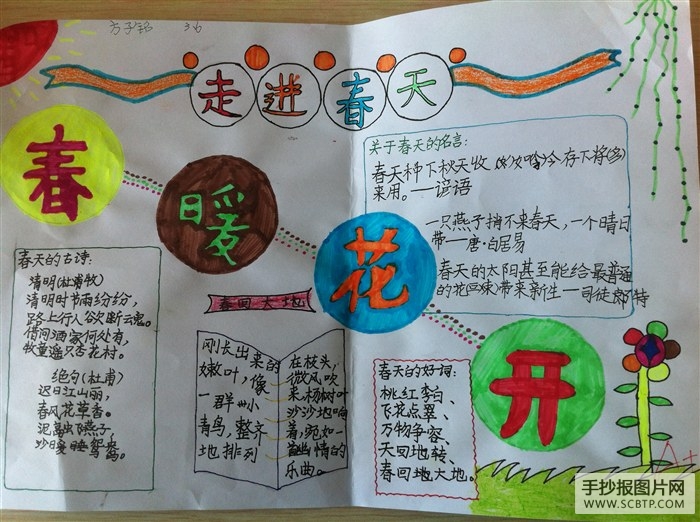 方子铭 36
走进春天
春
暖
花
开
关于春天的名言:
春天种下秋天收
来用。——谚语
一只燕子捎不来春天,一个晴日
带—唐·白居易
春天的太阳甚至能给最普通
的花 带来新生—司徒 特
春天的古诗:
清明(杜甫牧)
清明时节雨纷纷,
路上行人欲断云魂。
借问酒家何处有,
牧童遥 杏花村。
绝句(杜甫)
迟日江山丽,
春风花草香。
泥 飞燕子,
沙日暖睡鸳鸯。
春回大地
刚长出来的
嫩叶,像
一群小
青鸟,整齐
地排列
在枝头,
微风吹
来,杨树叶
沙沙地响
着,宛如一
首 情的
乐曲。
春天的好词:
桃红李白、
飞花点翠、
万物争容、
天回地转、
春回地大地。
A+
手抄报图片网
WWW.SCBTP.COM